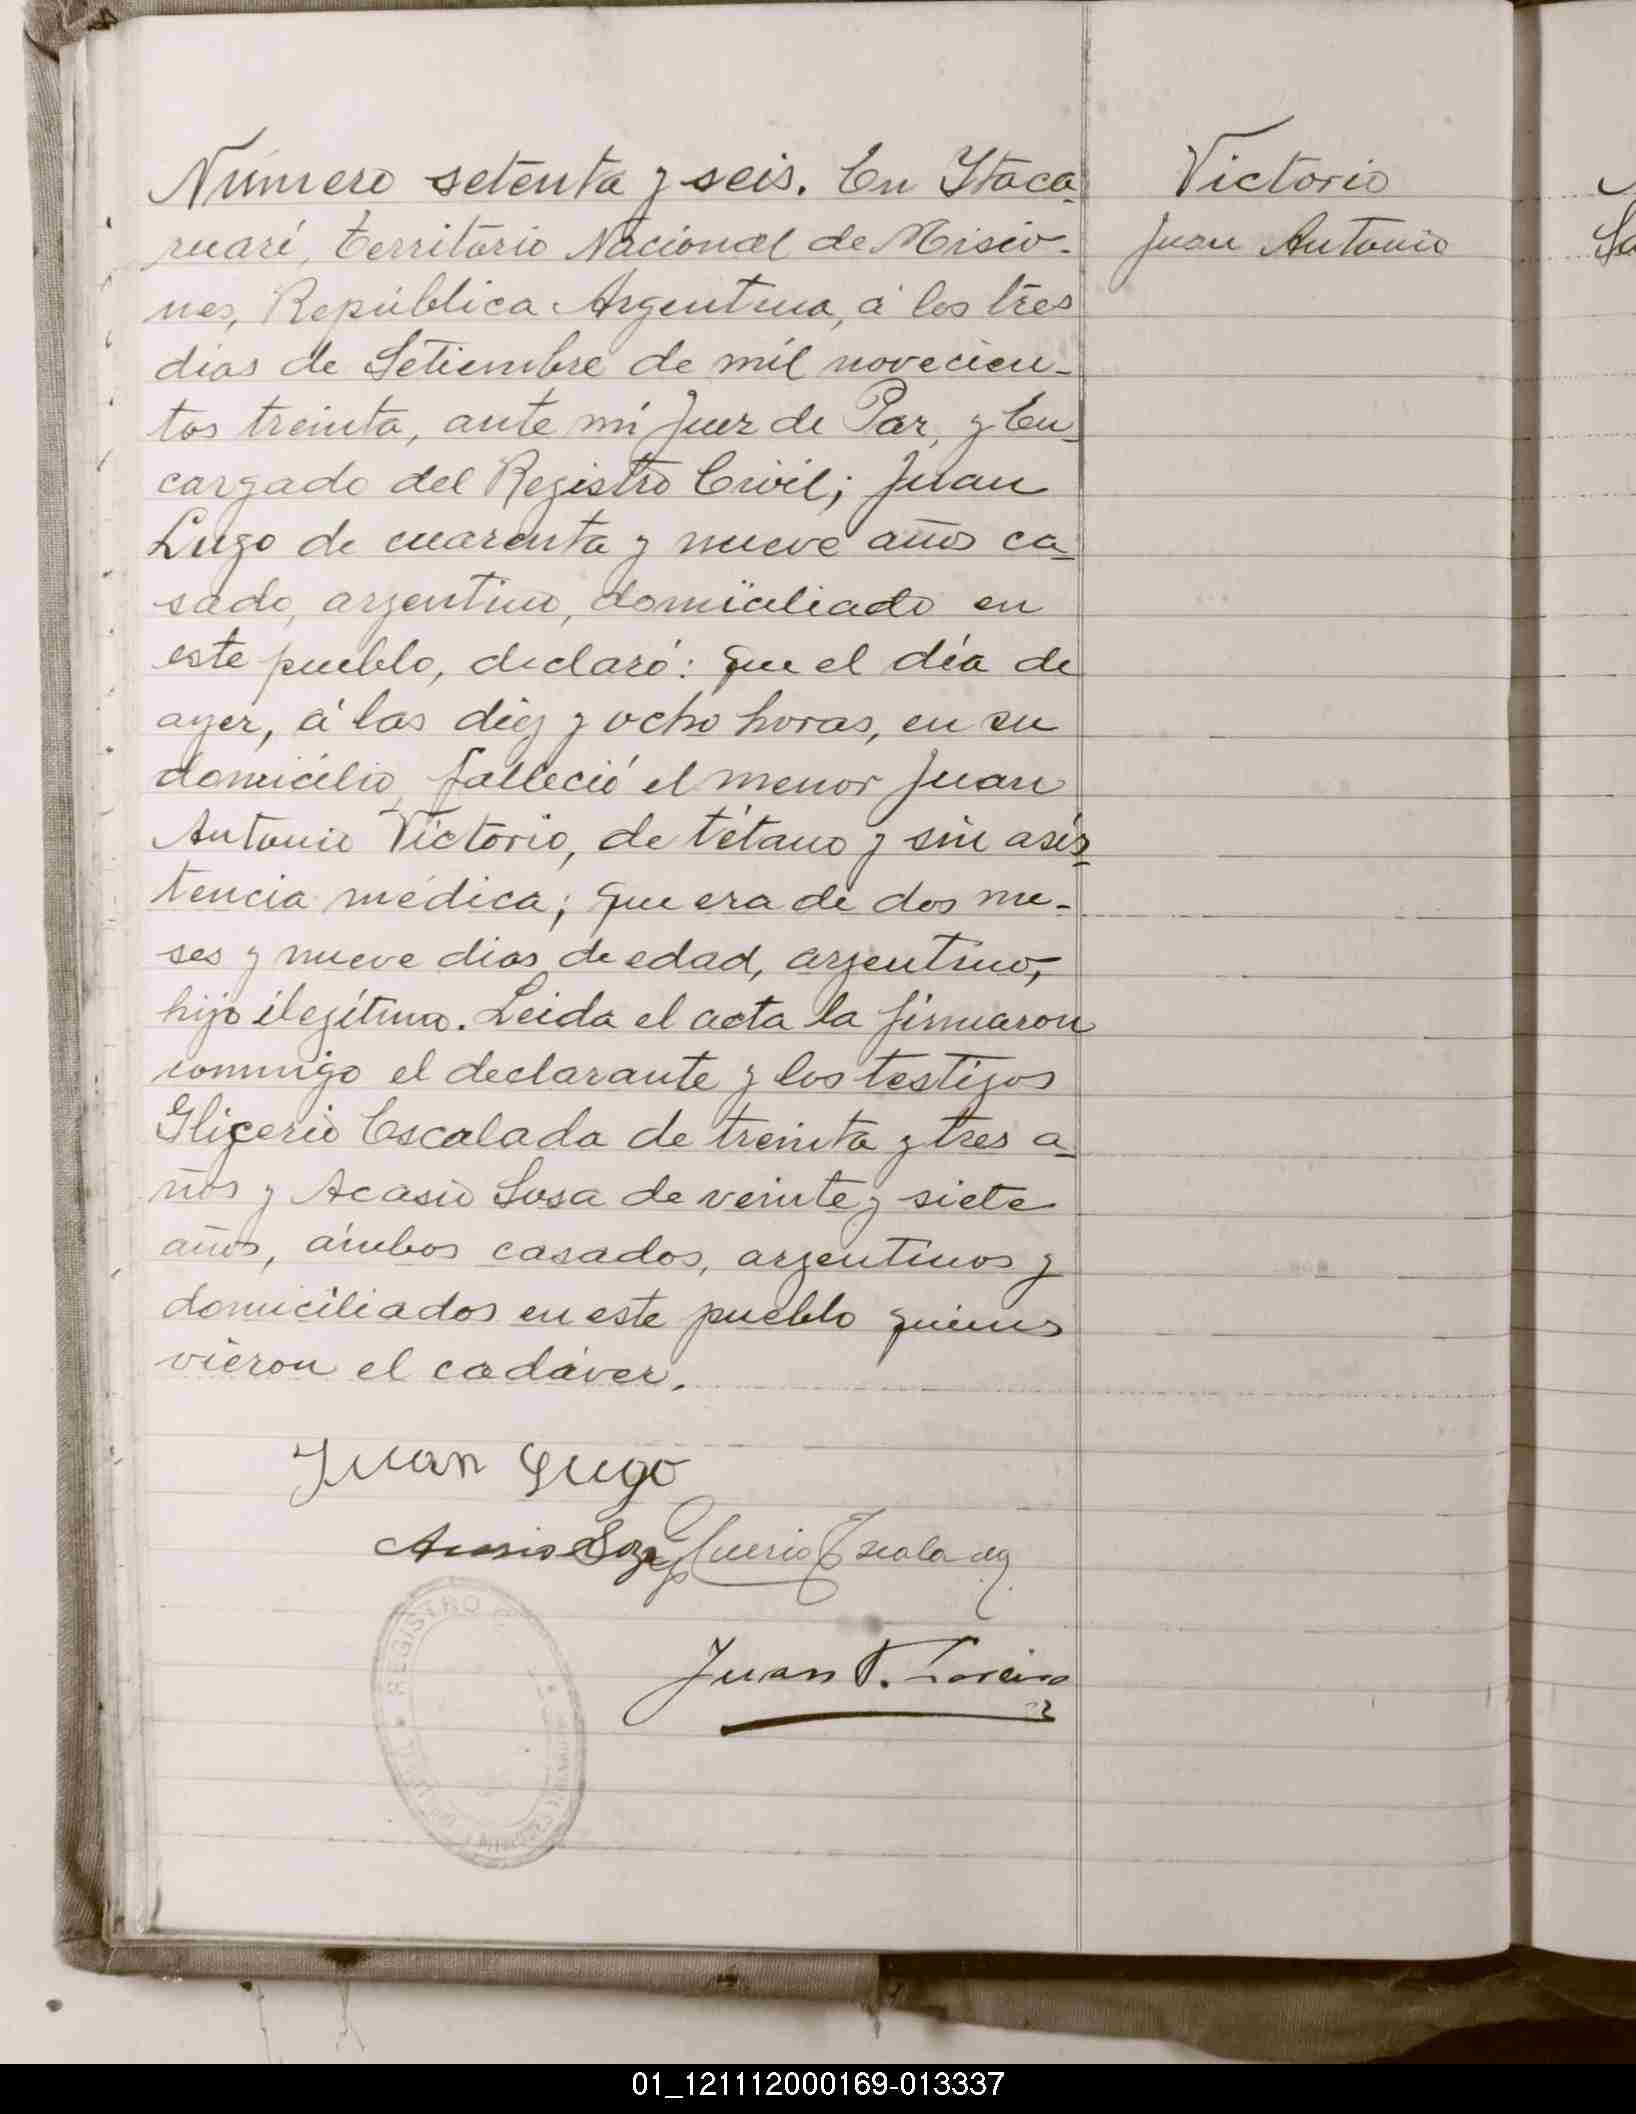 Número setenta y seis. En Itaca-
ruaré, territorio Nacional de Misio-
nes, República Argentina, á los tres
dias de Setiembre de mil novecien-
tos treinta, ante mí Juez de Paz, y En-
cargado del Registro Civil; Juan
Lugo de cuarenta y nueve años ca-
sado, argentino, domiciliado en
este pueblo, declaró: que el día de
ayer, á las diez y ocho horas, en su
domicilio, falleció el menor Juan
Antonio Victorio, de tétano y sin asis-
tencia médica; que era de dos me-
ses y nueve dias de edad, argentino,
hijo ilegítimo. Leida el acta la firmaron
conmigo el declarante y los testigos
Glicerio Escalada de treinta y tres a-
ños y Acasio Sosa de veinte y siete
años, ámbos casados, argentinos y
domiciliados en este pueblo quienes
vieron el cadáver.
Victorio
Juan Antonio
Juan Lugo
Acasio Sosa Glicerio Escalada
Juan
REGISTRO
01_121112000169-013337